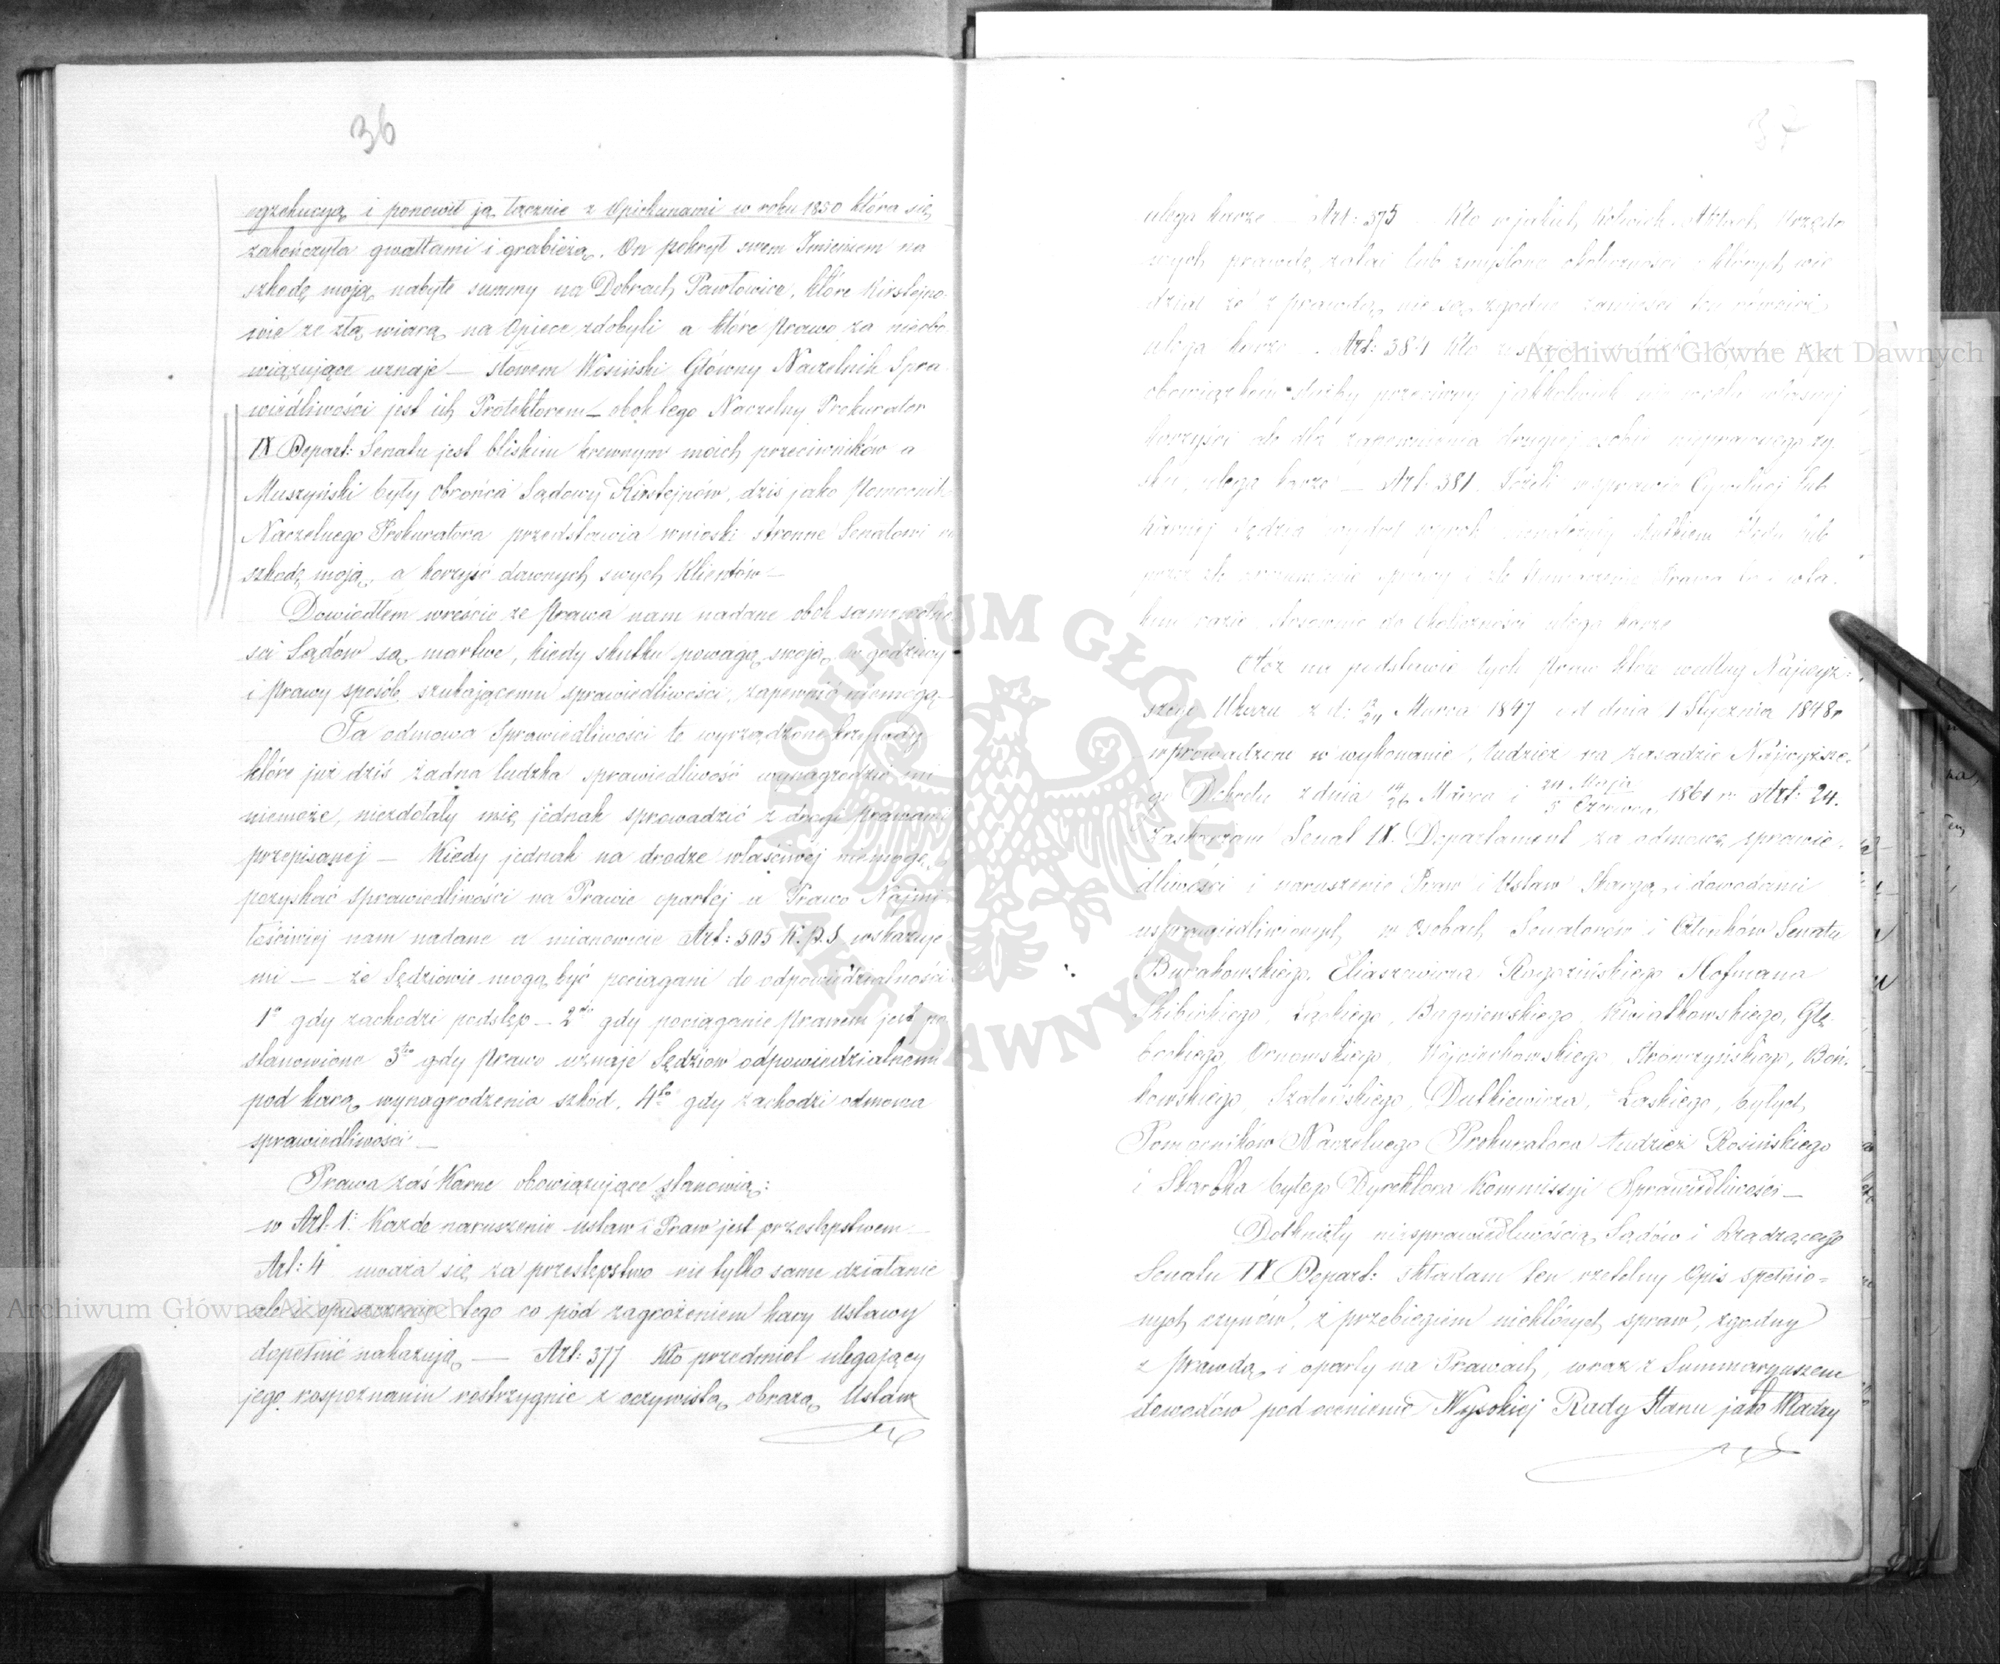 36
egzekucyą i ponowił ją łącznie z Opiekunami w roku 1850 która się
zakończyła gwałtami i grabieżą. On pokrył swem Imieniem na
szkodę moją nabyte summy na Dobrach Pawłowice, które Kirstejno-
wie ze złą wiarą na Opiece zdobyli a które prawo za nieobo-
wiązujące uznaje — słowem Wosiński Główny Naczelnik Spra-
wiedliwości jest ich Protektorem — obok tego Naczelny Prokurator
IX Depart: Senatu jest bliskim krewnym moich przeciwników a
Muszyński były Obrońca Sądowy Kirstejnów, dziś jako Pomocnik
Naczelnego Prokuratora przedstawia wnioski stronne Senatowi na
szkodę moją, a korzyść dawnych swych Klientów —
Dowiodłem wreście że Prawa nam nadane obok samowolno-
ści Sądów są martwe, kiedy skutku powagą swoją w godziwy
i prawy sposób szukającemu sprawiedliwości, zapewnić niemogą —
Ta odmowa Sprawiedliwości te wyrządzone krzywdy
które już dziś żadna ludzka sprawiedliwość wynagrodzić mi
niemoże, niezdołały mię jednak sprowadzić z drogi prawami
przepisanej — Kiedy jednak na drodze właściwej niemogę
pozyskać sprawiedliwości na Prawie opartej a Prawo Najmi-
łościwiej nam nadane a mianowicie Art: 505 K.P.S. wskazuje
mi — że Sędziowie mogą być pociągani do odpowiedzialności
1º gdy zachodzi podstęp — 2do gdy pociąganie Prawem jest po-
stanowione 3tio gdy prawo uznaje Sędziów odpowiedzialnemi
pod karą wynagrodzenia szkód. 4to gdy zachodzi odmowa
sprawiedliwości —
Prawa zaś Karne obowiązujące stanowią:
w Art: 1: Każde naruszenie ustaw i Praw jest przestępstwem —
Art: 4 uważa się za przestępstwo nie tylko same działanie
ale i opuszczenie tego co pod zagrożeniem kary Ustawy
dopełnić nakazują — Art: 377 Kto przedmiot ulegający
jego rozpoznaniu rozstrzygnie z oczywistą obrazą Ustaw
37
ulega karze — Art: 375 Kto w jakich kolwiek Aktach Urzędo-
wych prawdę zatai lub zmyślone okoliczności o których wie-
dział że z prawdą nie są zgodne zamieści ten również
ulega karze — Art: 384 Kto
obowiązkom służby przeciwny jakkolwiek nie w celu własnej
korzyści ale dla zapewnienia drugiej osobie nieprawnego zy-
sku, ulega karze — Art: 381. Jeżeli w sprawie Cywilnej lub
Karnej Sędzia wydał wyrok skutkiem błędu lub
przez złe zrozumienie sprawy i złe tłumaczenie Prawa to w ta-
kim razie stosownie do okoliczności ulega karze
Otóż na podstawie tych Praw które według Najwyż-
szego Ukazu z d: 12/24 Marca 1847 od dnia 1 Stycznia 1848 r
wprowadzone w wykonanie, tudzież na zasadzie Najwyższe-
go Dekretu z dnia 14/26 Marca i 24 Maja/5 Czerwca 1861 r. Art: 24.
Zaskarżam Senat IX Departament za odmowę sprawie-
dliwości i naruszenie Praw i Ustaw Skargą i dowodami
usprawiedliwionych w osobach Senatorów i Członków Senatu
Burakowskiego, Eliaszewicza Rogozińskiego Hofmana
Skibickiego, Łąckiego, Bagniewskiego, Kwiatkowskiego, Głę-
bockiego, Ornowskiego, Wojciechowskiego Stronczyńskiego, Boń-
kowskiego, Szaleńskiego, Dutkiewicza, Łaskiego, byłych
Pomocników Naczelnego Prokuratora tudzież Kosińskiego
i Skarbka byłego Dyrektora Kommissyi Sprawiedliwości —
Dotknięty niesprawiedliwością Sądów i Rządzącego
Senatu IX Depart: składam ten rzetelny Opis spełnio-
nych czynów, z przebiegiem niektórych spraw, zgodny
z Prawdą i oparty na Prawach, wraz z Summaryuszem
dowodów pod ocenienie Wysokiej Rady Stanu jako Władzy